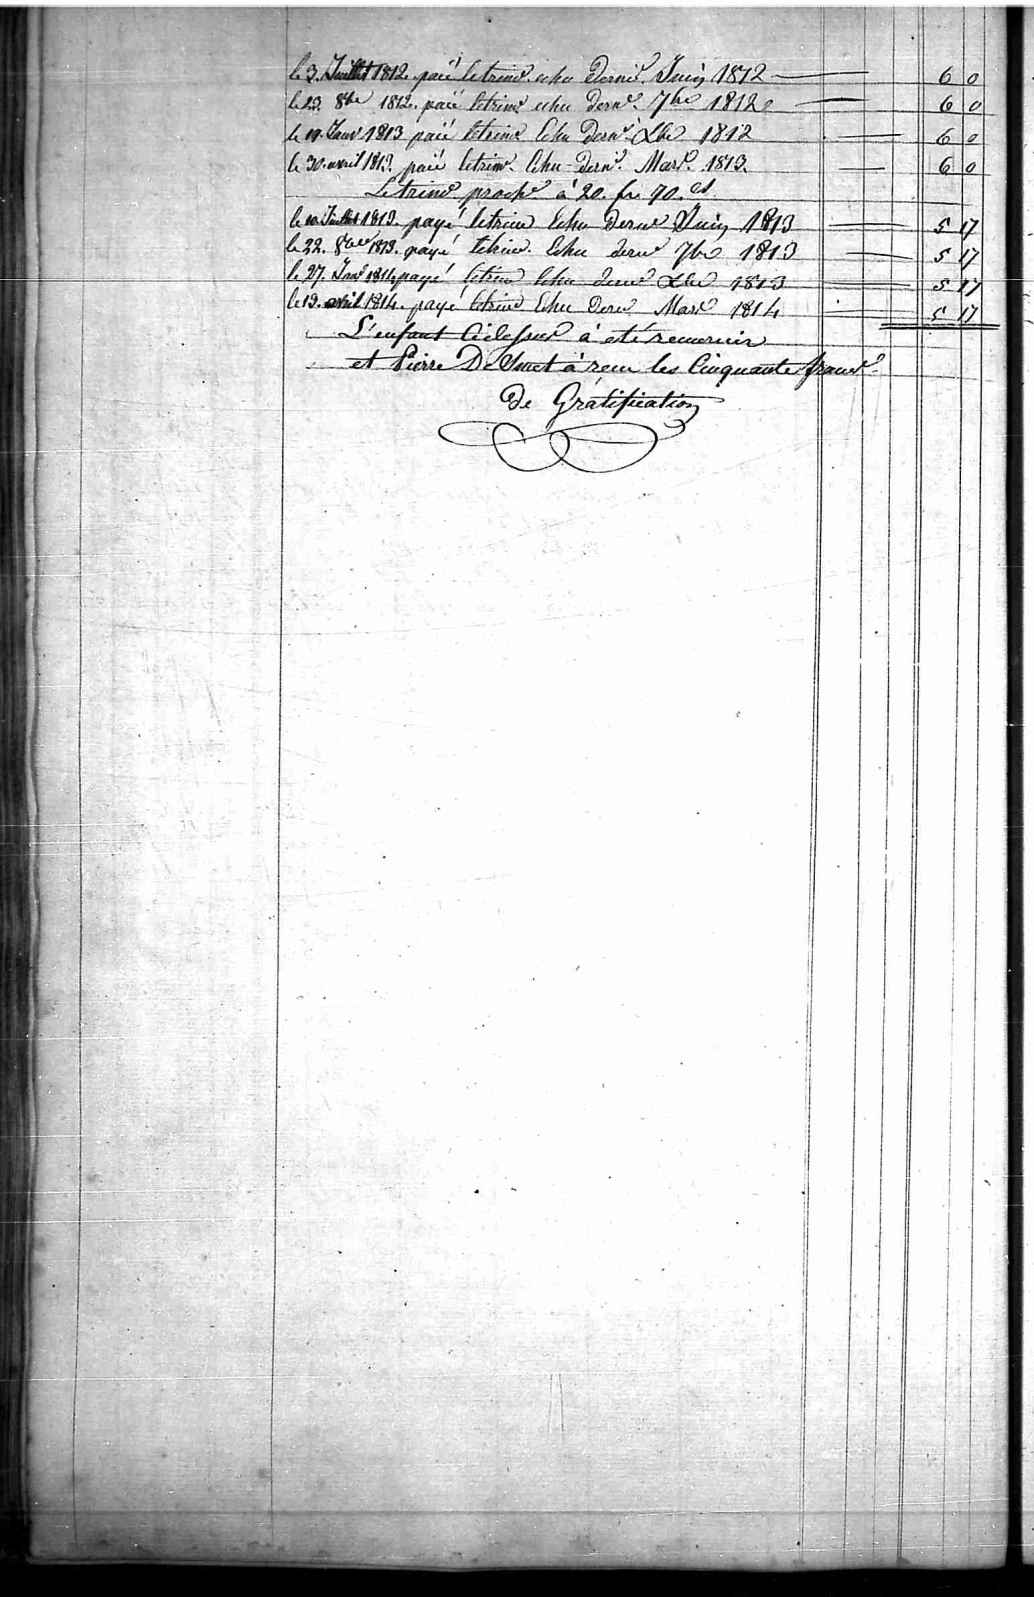 le 3. Juillet 1812. paié le trimᵉ echu Dernier. Juin 1812 — 6 0
le 23. 8bre 1812. paié le trimᵉ echu dernʳ. 7bre 1812 — 6 0
le 19. Janvʳ 1813 paié le trimᵉ Echu Dernʳ. Xbre 1812 — 6 0
le 30. avril 1813. paié le trimᵉ. Echu Dernʳ. Mars. 1813. — 6 0
Le trimᵉ prochⁿ à 20. fr. 70. cs
le 10. Juillet 1813. payé le trim Echu Dernʳ Juin 1813 — 5 17
le 22. 8bre 1813. payé le trim. Echu dernʳ 7bre 1813 — 5 17
le 27. Janʳ 1814 payé le trim Echu dernʳ Xbre 1813 — 5 17
le 19. avril 1814. payé le trim Echu Dernʳ Mars 1814 — 5 17
L'enfant Cidessus à eté
et Pierre De Smet à recu les Cinquante francs
de Gratification